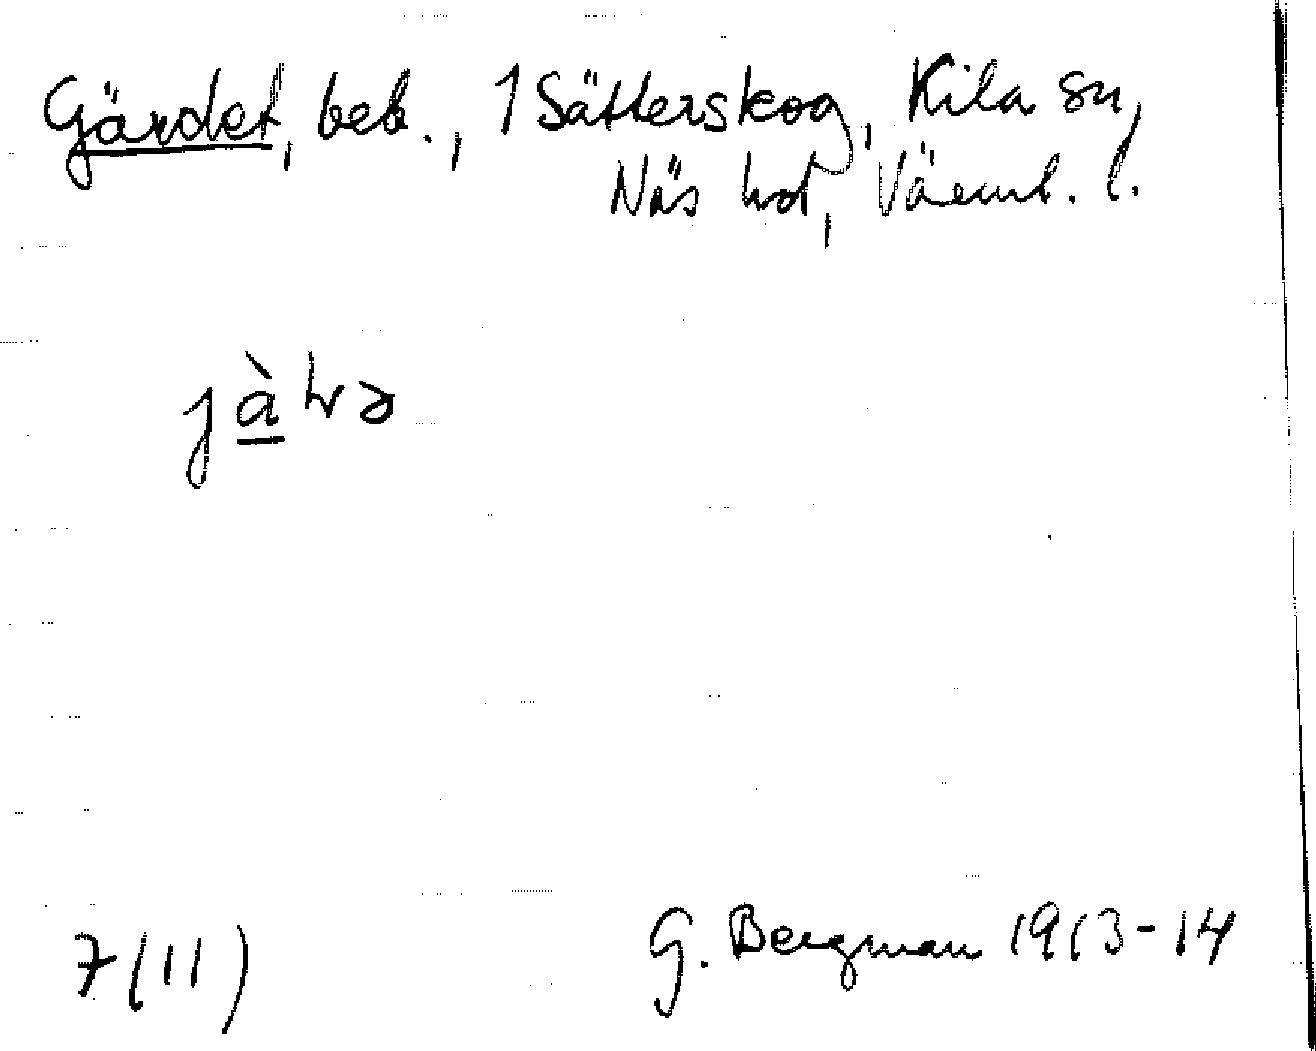 Gärdet, beb., 1 Sätterskog, Kila sn,
Näs hd, Värml. l.
7(11)
G. Bergman 1913-14